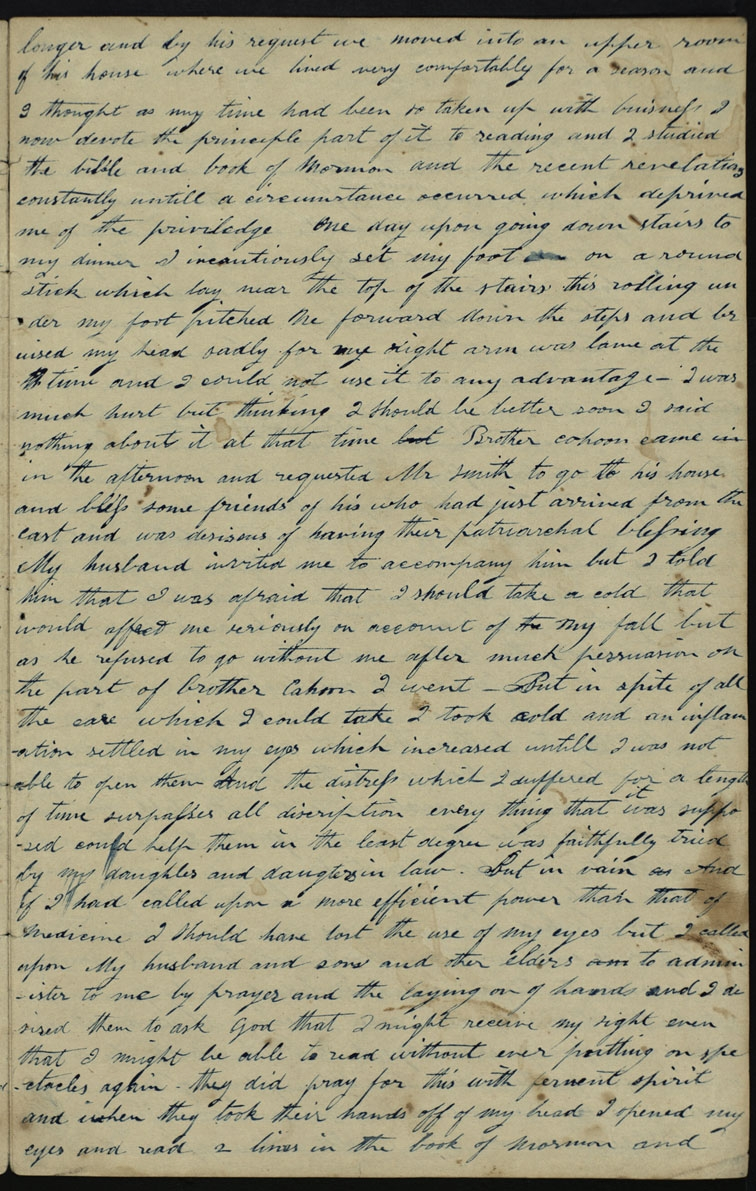 longer and by his request we moved into an upper room
of his house where we lived very comfortably for a season and
I thought as my time had been so taken up with buisness I
now devote the principle part of it to reading and I studied
the bible and book of Mormon and the recent revelations
constantly untill a circumstance occurred which deprived
me of the priviledge One day upon going down stairs to
my dinner I incautiously set my foot on a round
stick which lay near the top of the stairs this rolling un
der my foot pitched me forward down the steps and br
uised my head sadly for my right arm was lame at the
time and I could not use it to any advantage - I was
much hurt but thinking I should be better soon I said
nothing about it at that time but Brother cahoon came in
in the afternoon and requested Mr Smith to go to his house
and bless some friends of his who had just arrived from the
east and was desirous of having their patriarchal blessing
My husband invited me to accompany him but I told
him that I was afraid that I should take a cold that
would affect me seriously on account of the my fall but
as he refused to go without me after much perssuasion on
the part of brother Cahoon I went - But in spite of all
the care which I could take I took cold and an inflam
-ation settled in my eyes which increased untill I was not
able to open them And the distress which I suffered for a length
of time surpasses all discription every thing that it was suppo
-sed could help them in the least degree was faithfully tried
by my daughter and daugters in law. But in vain as And
if I had called upon a more efficient power than that of
medicine I should have lost the use of my eyes but I called
upon My husband and sons and other Elders to admin
-ister to me by prayer and the laying on of hands and I de
sired them to ask God that I might receive my sight even
that I might be able to read without ever putting on spe
-ctacles again - they did pray for this with fervent spirit
and when they took their hands off of my head I opened my
eyes and read 2 lines in the book of Mormon and